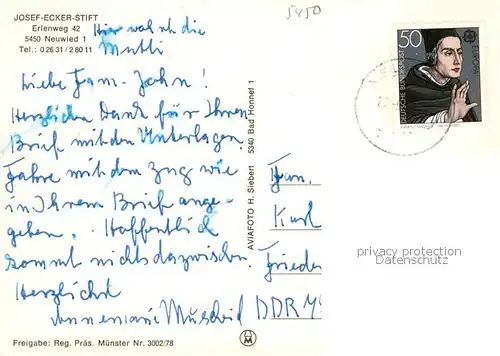 JOSEF-ECKER-STIFT
Erlenweg 42
5450 Neuwied 1
Tel.: 0 26 31 / 2 80 11
Hier die
Mutti
5450
50
DEUTSCHE BUNDESPOST
EUROPA
Liebe Fam. Jahn!
Herzlichen Dank für Ihren
Brief mit den Unterlagen.
Fahre mit dem Zug wie
in Ihrem Brief ange-
geben. Hoffentlich
kommt nichts dazwischen.
Herzlichst
Annemarie
AVIAFOTO H. Siebert
5340 Bad Honnef 1
Fam.
Karl
privacy protection
Datenschutz
Frieden
DDR
Freigabe: Reg. Präs. Münster Nr. 3002/78